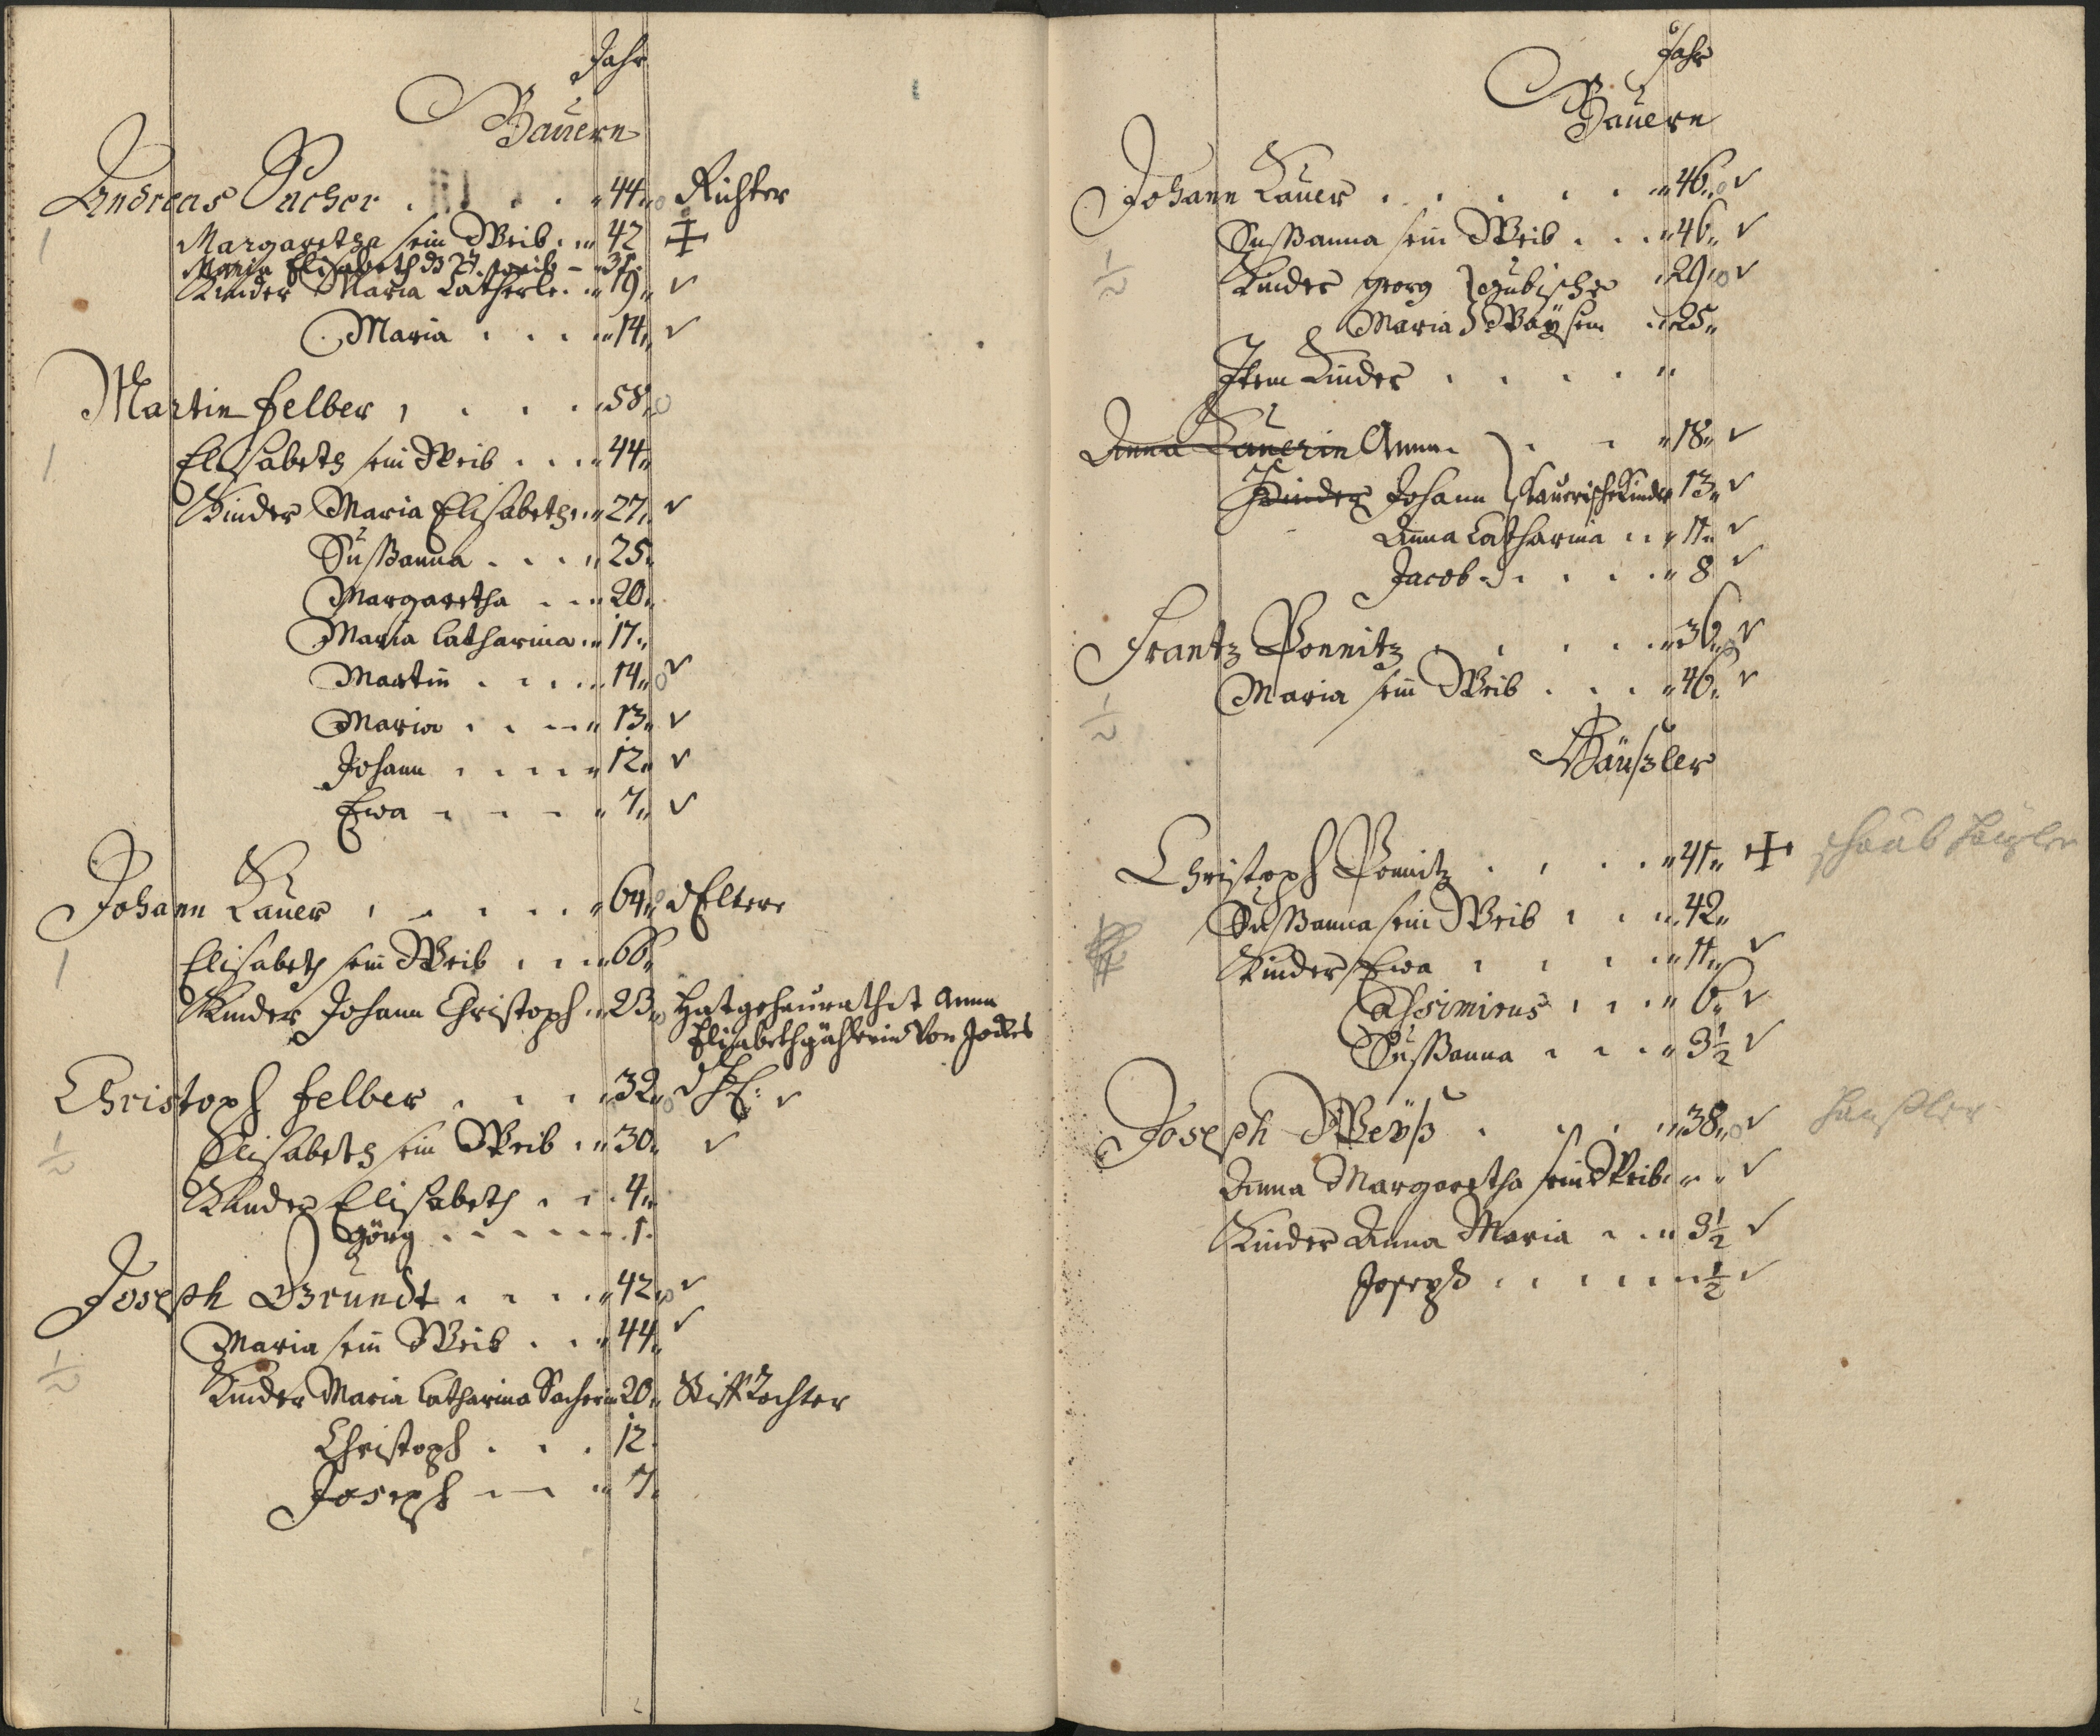 Jahr
Bauern
Andreas Pacher 44 Richter
1 Margaretha sein Weib 42
Maria Elisabeth 2t. weib 31
Kinder Maria Catherle 19
Maria 14
Martin Felber 58
1 Elisabeth sein Weib 44
Kinder Maria Elisabeth 27
Sußanna 25
Margaretha 20
Maria Catharina 17
Martin 14
Maria 13
Johann 12
Ewa 7
Johann Lauer 64 d Eltere
1 Elisabeth sein Weib 66
Kinder Johann Christoph 23 Hat geheurathet Anna
Elisabeth von
Christoph Felber 32
1/2 Elisabeth sein Weib 30
Kinder Elisabeth 4
Görg 1
Joseph Grundt 42
Maria sein Weib 44
1/2 Kinder Maria Catharina Sacherin 20 Stiff Tochter
Christoph 12
Joseph 7
Jahr
Bauern
Johann Lauer 46
Sußanna sein Weib 46
1/2 Kinder Georg 29
Maria Waysen 25
Item Kinder
Anna Lauerin Anna 18
Kinder Johann Lauerische Kinder 13
Anna Catharina 11
Jacob 8
Frantz Ponnitz 36
Maria sein Weib 46
1/2
Häußler
Christoph Ponnitz 41
Sußanna sein Weib 42
Kinder Ewa 11
6
Sußanna 3 1/2
Joseph Weyß 38 Haußler
Anna Margaretha sein Weib
Kinder Anna Maria 3 1/2
Joseph 1/2